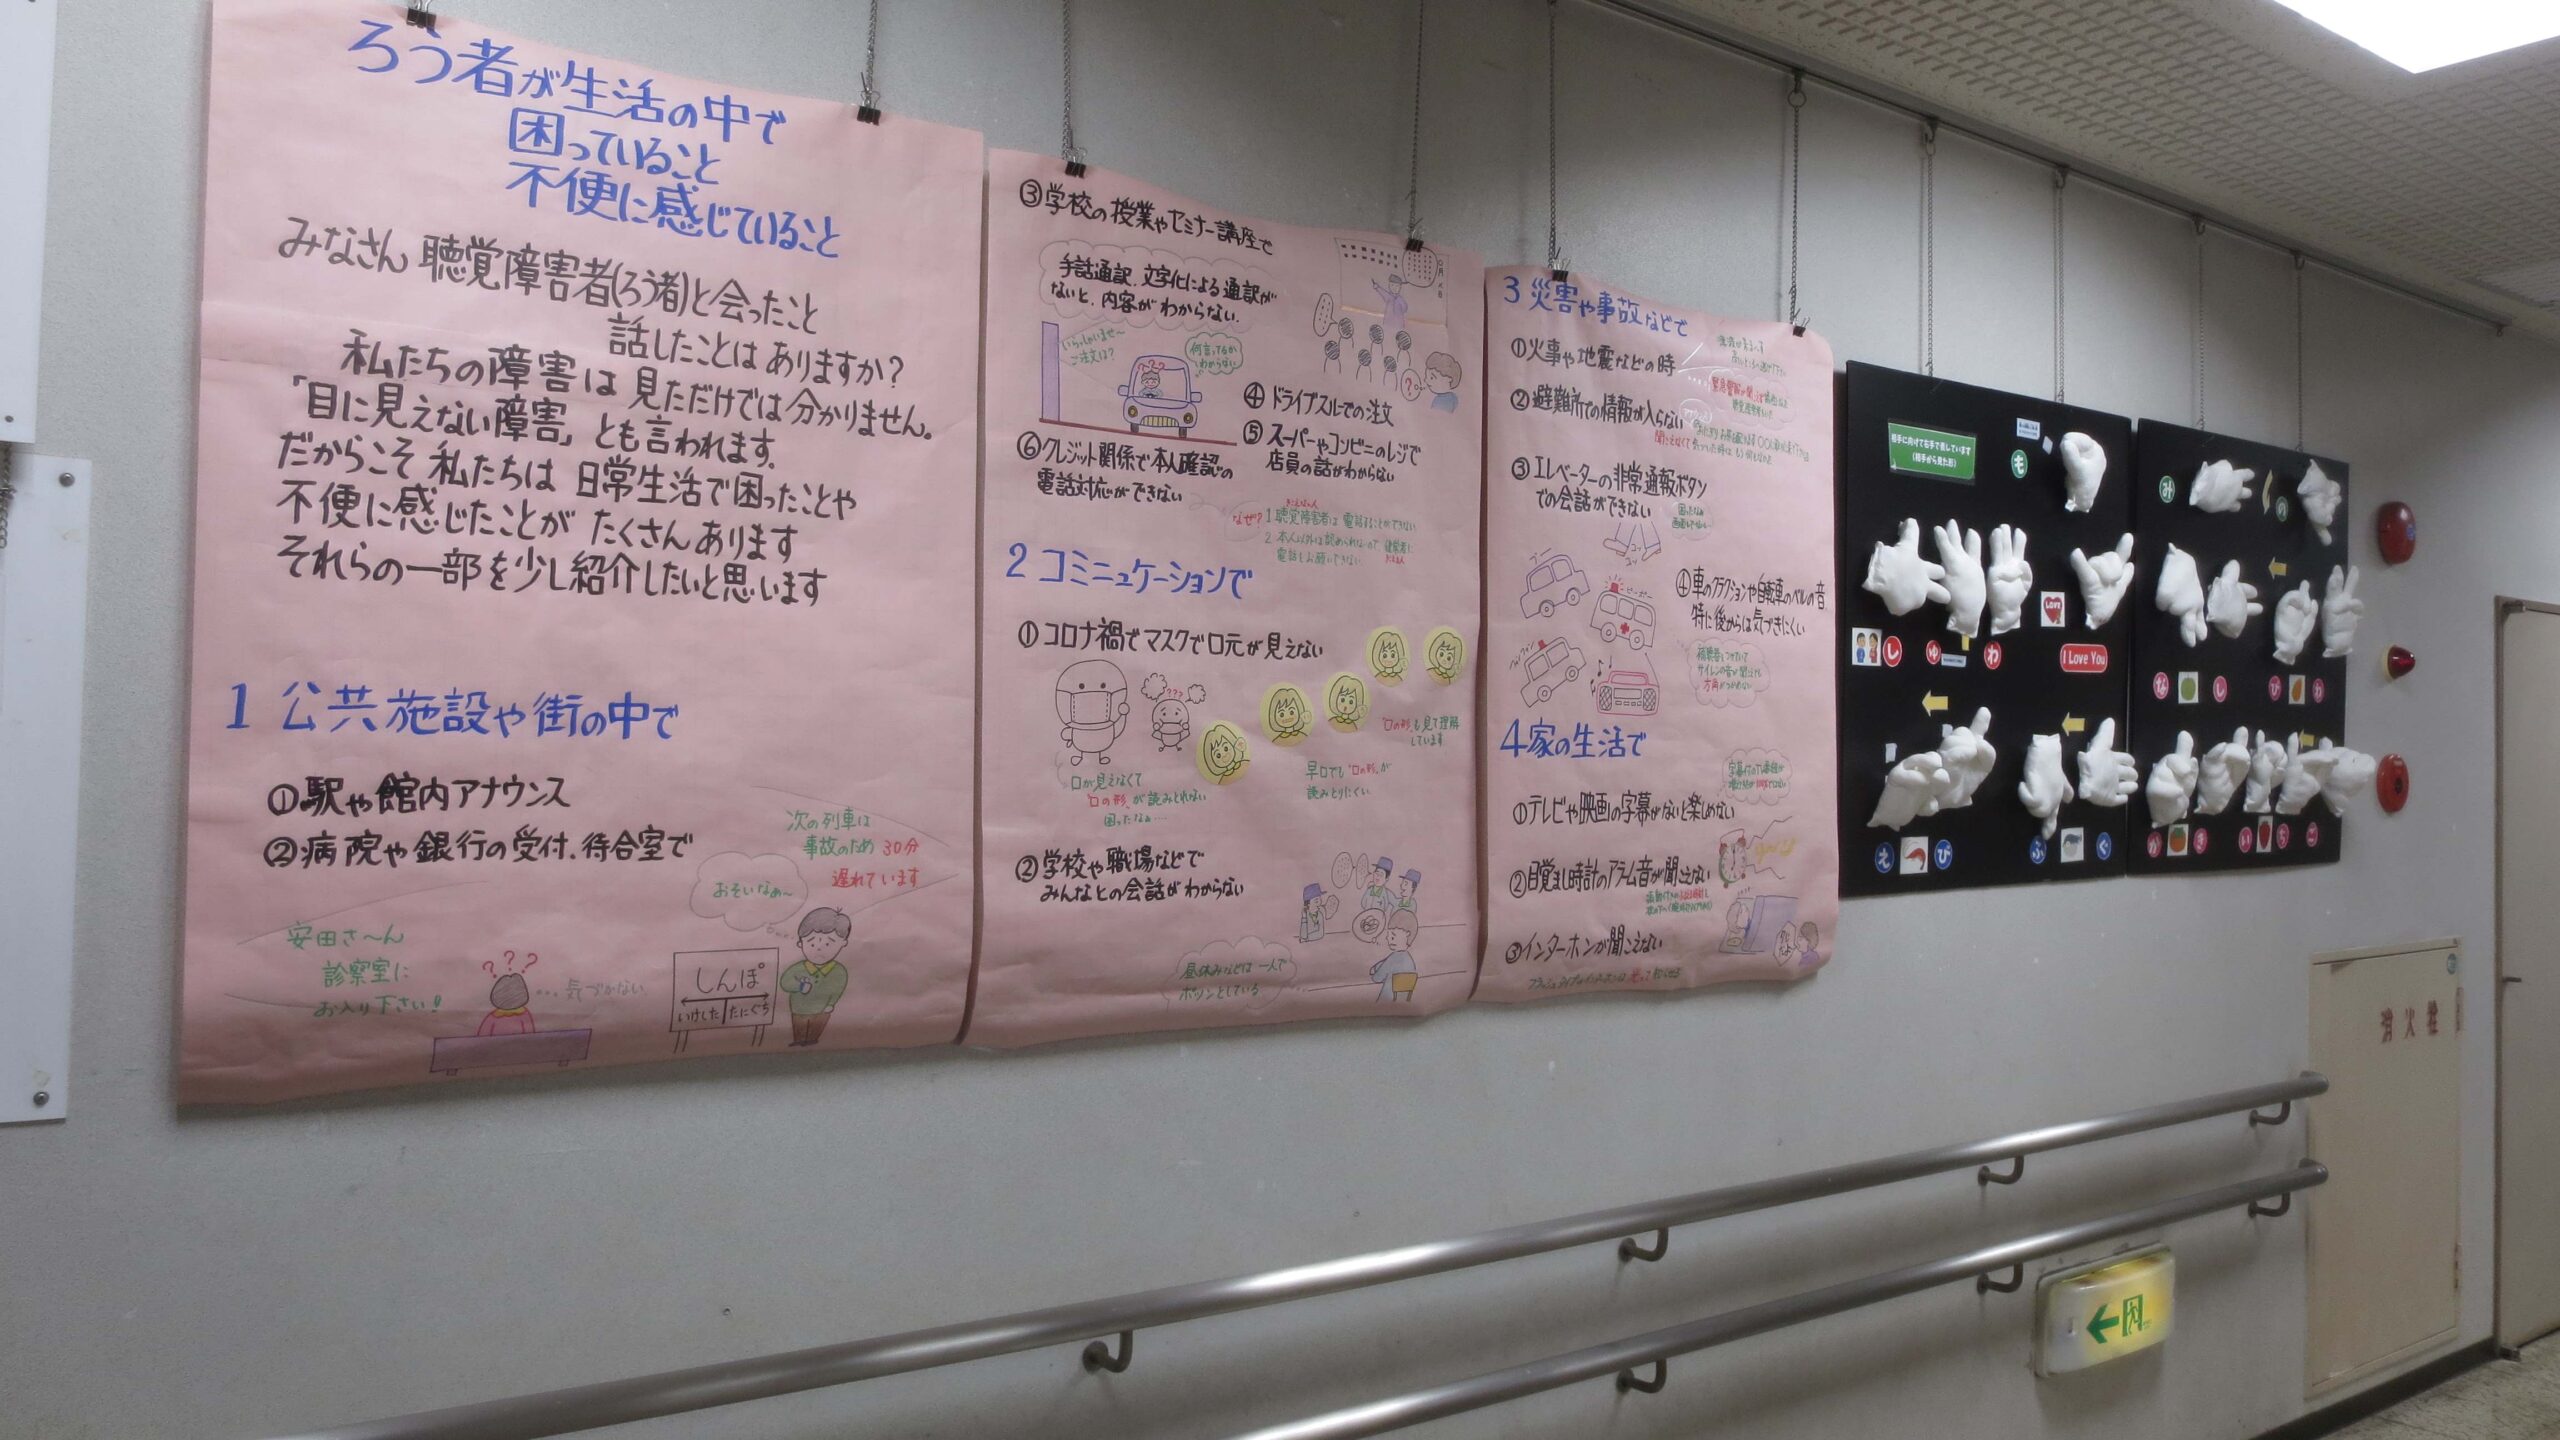 ろう者が生活の中で
困っていること
不便に感じていること
みなさん 聴覚障害者(ろう者)と会ったこと
話したことは ありますか?
私たちの障害は 見ただけでは 分かりません。
「目に見えない障害」とも言われます。
だからこそ 私たちは 日常生活で困ったことや
不便に感じたことが たくさんあります
それらの一部を少し紹介したいと思います
1 公共施設や街の中で
①駅や館内アナウンス
②病院や銀行の受付、待合室で
次の列車は
事故のため 30分
遅れています
おそいなぁ~
安田さ~ん
診察室に
お入り下さい!
???
…気づかない
しんぽ
いけした
たにぐち
③学校の授業やセミナー講座で
手話通訳、文字化による通訳が
ないと、内容が わからない.
いらっしゃいませ~
ご注文は?
???
何言ってるか
わからない
?
④ドライブスルでの注文
⑤スーパーやコンビニのレジで
店員の話がわからない
⑥クレジット関係で本人確認の
電話対応ができない
なぜ?
1 聴覚障害者は 電話することができない
2 本人以外は認められないので、健常者に
電話もお願いできない
2 コミュニケーションで
①コロナ禍でマスクで口元が見えない
???
口が見えなくて
"口の形"が読みとれない
困ったなぁ…
早口でも"口の形"が
読みとりにくい
"口の形"も見て理解
しています
②学校や職場などで
みんなとの会話がわからない
昼休みなどは 一人で
ポツンとしている
3 災害や事故などで
①火事や地震などの時
②避難所での情報が入らない
③エレベーターの非常通報ボタン
での会話ができない
④車のクラクションや自転車のベルの音
特に後からは気づきにくい
補聴器をつけていて
サイレンの音が聞えても
方角がつかめない
4 家の生活で
①テレビや映画の字幕がないと楽しめない
②目覚まし時計のアラーム音が聞こえない
③インターホンが聞こえない
相手に向けて右手で表しています
(相手から見た形)
も
し ゆ わ
LOVE
I Love You
え び
ふ ぐ
み
の
な し
び わ
か き
い ち ご
消火栓